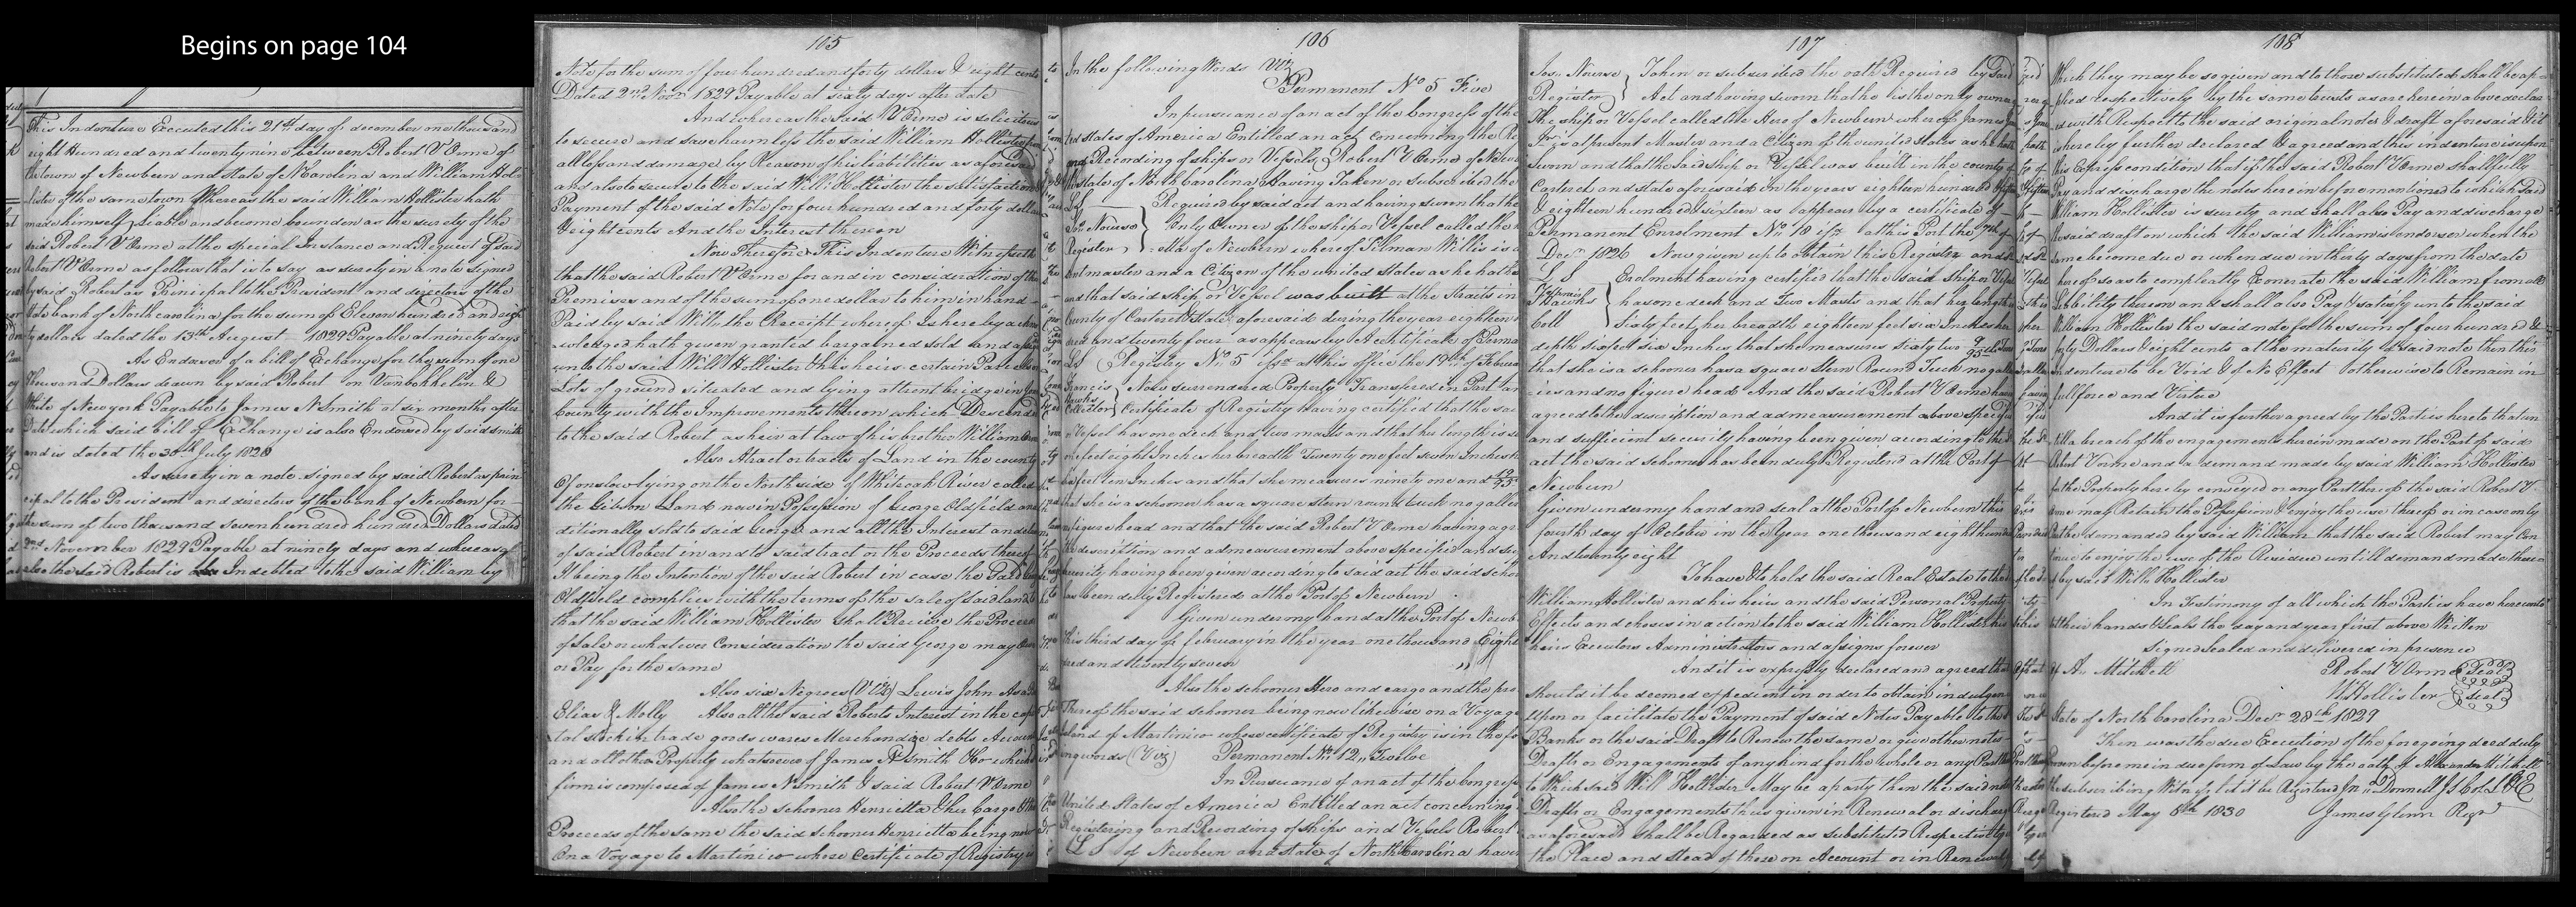 Begins on page 104
This Indenture Executed this 21st day of december one thousand
eight Hundred and twenty nine between Robert V Orme of
the town of Newbern and State of N Carolina and William Hol
lister of the same town Whereas the said William Hollister hath
made himself Liable and become bounden as the surety of the
said Robert V Orme at the special Instance and Request of said
Robert V Orme as follows that is to say as surety in a note signed
by said Robert as Principal to the President and directors of the
State bank of North carolina for the sum of Eleven hundred and eigh
ty dollars dated the 13th August 1829 Payable at ninety days
As Endorser of a bill of Exchange for the sum of one
thousand Dollars drawn by said Robert on Vanbokkelin &
White of New york Payable to James N Smith at six months after
Date which said bill of Exchange is also Endorsed by said smith
and is dated the 30th July 1829
As surety in a note signed by said Robert as prin
cipal to the President and directors of the bank of Newbern for
the sum of two thousand seven hundred hundred Dollars dated
2nd November 1829 Payable at ninety days and whereas
also the said Robert is Indebted to the said William by
105
Note for the sum of four hundred and forty dollars & eight cents
Dated 2nd Novr 1829 Payable at sixty days after date
And whereas the said V Orme is solicitous
to secure and save harmless the said William Hollister from
all loss and damage by Reason of his liabilities as aforesaid
and also to secure to the said Willi Hollister the satisfaction
Payment of the said Note for four hundred and forty dollars
& eight cents And the Interest thereon
Now Therefore This Indenture Witnesseth
that the said Robert V Orme for and in consideration of the
Premises and of the sum of one dollar to him in hand
Paid by said Willm the Receipt whereof Is hereby ackno
wledged hath given granted bargained sold and
unto the said Will Hollister & his heirs certain Parcels or
Lots of ground situated and lying at trent bridge in
County with the Improvements thereon which Descended
to the said Robert as heir at law of his brother William
Also A tract or tracts of Land in the county
Of onslow lying on the North side of Whiteoak River called
the Gibson Land now in Possession of George Oldfield
ditionally sold to said George and all the Interest and
of said Robert in and to said tract or the Proceeds thereof
It being the Intention of the said Robert in case the said
Oldfield complies with the terms of the sale of said land
that the said William Hollister shall Receive the Proceeds
of sale or whatever Consideration the said George may
or Pay for the same
Also six Negroes (Viz) Lewis John Asa
Elias & Molly Also all the said Roberts Interest in the capi
tal stock in trade goods wares Merchandize debts Accounts
and all other Property whatsoever of James N Smith & Co which
firm is composed of James N Smith & said Robert V Orme
Also the schooner Henrietta & her Cargo & the
Proceeds of the same the said Schooner Henrietta being now
On a Voyage to Martinico whose Certificate of Registry is
106
In the following Words Viz
Permanent No 5 Five
In pursuance of an act of the Congress of the
ted states of America Entitled an act Concerning the Re
and Recording of ships or Vessels Robert V Orme of Newb
the state of North Carolina Having Taken or subscribed the
LS Required by said act and having sworn that he
Jos Nourse Only Owner of the ship or Vessel called the
Register etta of Newbern whereof Tilman Willis is a
ent master and a Citizen of the united states as he hath
and that said ship or Vessel was built at the Straits in
County of Carteret & State aforesaid during the year eighteen
dred and twenty four as appears by A certificate of Perma
LS Registry No 5 issd at this office the 19th of Februa
Francis Now surrendered Property Transfered in Part an
Hawks
Collector Certificate of Registry Having certified that the sai
Vessel has one deck and two masts and that her length is si
feet eight Inches her breadth Twenty one feet seven Inches
six feet ten Inches and that she measures ninety one and 49/95
that she is a schooner has a square stern round tuck no galler
figure head and that the said Robert V Orme having agr
the description and admeasurement above specified and su
curity having been given according to said act the said scho
as been duly Registered at the Port of Newbern
Given under my hand at the Port of Newb
this third day of february in the year one thousand Eight
red and twenty seven
Also the schooner Hero and cargo and the pro
Thereof the said schooner being now likewise on a Voyage
Island of Martinico whose certificate of Registry is in the fo
ing words (Viz) Permanent No 12,, Twelve
In Pursuance of an act of the Congress
United States of America Entitled an act concerning
Registering and Recording of Ships and Vessels Robert
LS of Newbern and state of North Carolina havin
107
Jos. Nourse Taken or subscribed the oath Required by said
Register Act and having sworn that he is the only owner
The ship or Vessel called the Hero of Newbern whereof James
is at present Master and a Citizen of the united states as he hath
Sworn and that the said ship or Vessel was built in the county of
Carteret and state aforesaid in the years eighteen hundred & fifteen
& eighteen hundred & sixteen as appears by a certificate of
Permanent Enrolment No 18 issd at this Port the 7th of
Decr 1826 Now given up to obtain this Register and
L S Enrolment having certified that the said Ship or Vessel
Francis
Hawks has one deck and Two Masts and that her length is
Coll Sixty feet, her breadth eighteen feet six Inches her
depth six feet six Inches, that she measures sixty two 9/95ths Tons
that she is a schooner has a square Stern Round Tuck no galler
ies and no figure head And the said Robert V Orme having
agreed to the discription and admeasurement above specified
and sufficient security having been given according to the
act the said schooner has been duly Registered at the Port of
Newbern
Given under my hand and seal at the Port of Newbern this
fourth day of October in the Year one thousand eight hundred
And twenty eight
To have & to hold the said Real Estate to the
William Hollister and his heirs and the said Personal Property
Effects and choses in action to the said William Hollister his
heirs Executors Administrators and assigns forever
And it is expressly declared and agreed that
should it be deemed expedient in order to obtain indulgen
Upon or facilitate the Payment of said Notes Payable to the
Banks or the said Draft to Renew the same or give other notes
Drafts or Engagements of any kind for the whole or any Part
to Which said Will Hollister May be a party then the said note
Drafts or Engagements thus given in Renewal or discharge
as aforesaid shall be Regarded as substituted Respectively
the Place and stead of those on Account or in Renewal
108
Which they may be so given and to those substituted shall be ap
plied respectively by the same trusts as are herein above declar
ed with Respect to the said original notes & draft aforesaid & it
is hereby further declared & agreed and this indenture is upon
this Express condition that if the said Robert V Orme shall fully
Pay and discharge the notes herein before mentioned to which said
William Hollister is surety and shall also Pay and discharge
the said draft on which the said William is endorser when the
same become due or when due in thirty days from the date
hereof so as to compleatly Exonerate the said William from all
Liability thereon and shall also Pay & satisfy unto the said
William Hollister the said note for the sum of four hundred &
forty Dollars & eight cents at the maturity of said note then this
Indenture to be Void & of No Effect otherwise to Remain in
full force and Virtue
And it is further agreed by the Parties hereto that un
till a breach of the engagements herein made on the Part of said
Robert Vorme and a demand made by said William Hollister
for the Property hereby conveyed or any Part thereof the said Robert V
Orme may Retain the Possession & enjoy the use thereof or in case only
Part be demanded by said William that the said Robert may Con
tinue to enjoy the use of the Residue untill demand made there
of by said Willm Hollister
In Testimony of all which the Parties have hereunto
set their hands & seals the day and year first above Written
Signed Sealed and delivered in presence
of A. Mitchell Robert V Orme Seal
W Hollister Seal
State of North Carolina Decr 28th 1829
Then was the due Execution of the foregoing deed duly
Proven before me in due form of Law by the oath of Alexander Mitchell
the subscribing Witness let it be Registered Jn R Donnell J S Co L & E
Registered May 8th 1830 James Glenn Regr